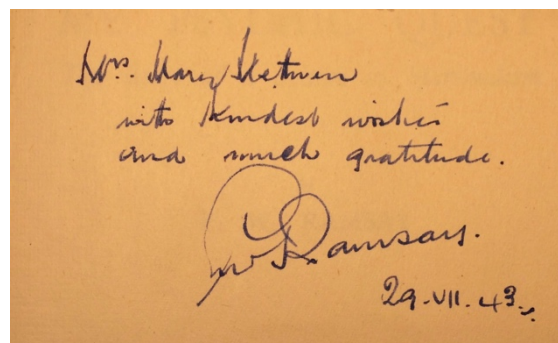 Mrs. Mary
with kindest wishes
and much gratitude.
Ramsay.
29.VII.43.